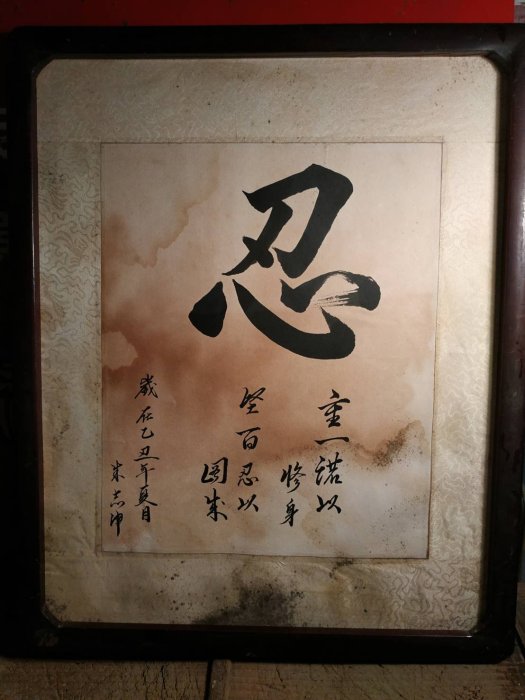 忍
重一諾以
修身
堅百忍以
圖成
歲在乙丑年夏月
朱志